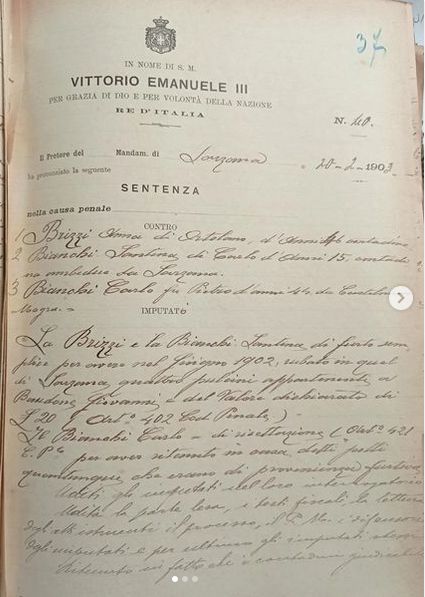 37
IN NOME DI S. M.
VITTORIO EMANUELE III
PER GRAZIA DI DIO E PER VOLONTÀ DELLA NAZIONE
RE D'ITALIA
N. 40.
Il Pretore del Mandam. di Sarzana 20-2-1903
ha pronunciato la seguente
SENTENZA
nella causa penale
CONTRO
1 Brizzi Anna di Ortolano, d'anni contadina
2 Bianchi Santina di Carlo d'Anni 15, contadi
na ambedue da Sarzana.
3 Bianchi Carlo fu Pietro d'anni 44 da Castelnuovo
Magra.
IMPUTATI
La Brizzi e la Bianchi Santina di furto sem
plice per avere nel Giugno 1902, rubato in quel
di Sarzana, quattro pulcini appartenenti a
Giovanni e del valore dichiarato di
L 20 (Art° 402 Cod. Penale)
Il Bianchi Carlo di ricettazione (Art° 421
C. P.) per aver ritenuto in casa detti polli
quantunque che erano di provenienza furtiva
Uditi gli imputati nel loro interrogatorio
Udita la parte lesa, i testi fiscali, la lettura
degli atti il processo, il P. M. i difensori
degli imputati e per ultimo gli imputati stessi
Ritenuto in fatto che i